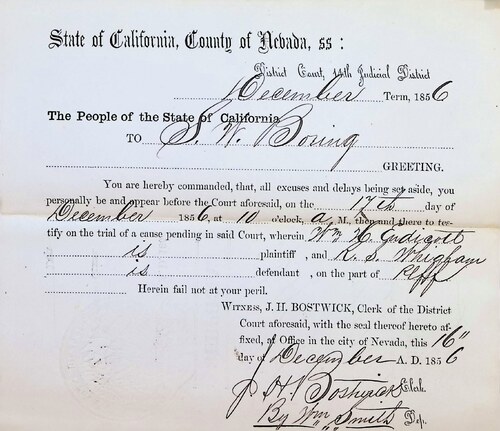 State of California, County of Nevada, ss:
District Court, 14th Judicial District
December Term, 1856
The People of the State of California
TO S. W. Boring
GREETING.
You are hereby commanded, that, all excuses and delays being set aside, you
personally be and appear before the Court aforesaid, on the 17th day of
December 1856, at 10 o'clock, a M., then and there to tes-
tify on the trial of a cause pending in said Court, wherein Wm H. Endicott
is plaintiff, and K. S. Whigham
is defendant, on the part of Plff
Herein fail not at your peril.
WITNESS, J. H. BOSTWICK, Clerk of the District
Court aforesaid, with the seal thereof hereto af-
fixed, at Office in the city of Nevada, this 16"
day of December A. D. 1856
J. H. Bostwick Clerk
By Wm Smith Dep.